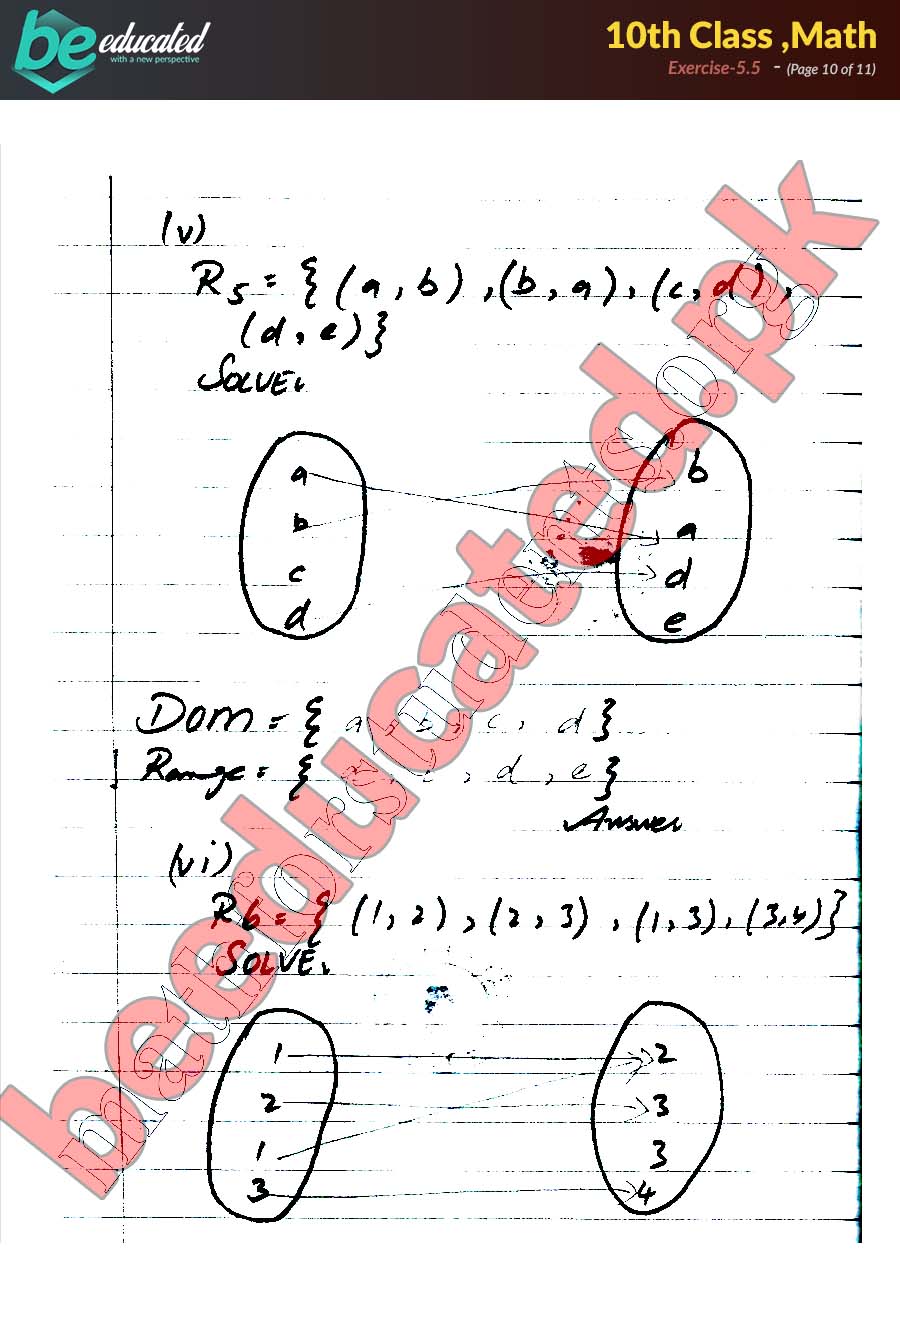 be educated
with a new perspective
10th Class ,Math
Exercise-5.5 - (Page 10 of 11)
(v)
R5 = { (a , b) , (b , a) , (c , d) ,
(d , e) }
SOLVE.
a b
b a
c d
d e
Dom = { a , b , c , d }
Range = { , , d , e }
Answer
(vi)
R6 = { (1 , 2) , (2 , 3) , (1 , 3) , (3,4) }
SOLVE.
1 2
2 3
1 3
3 4
beeducated.pk